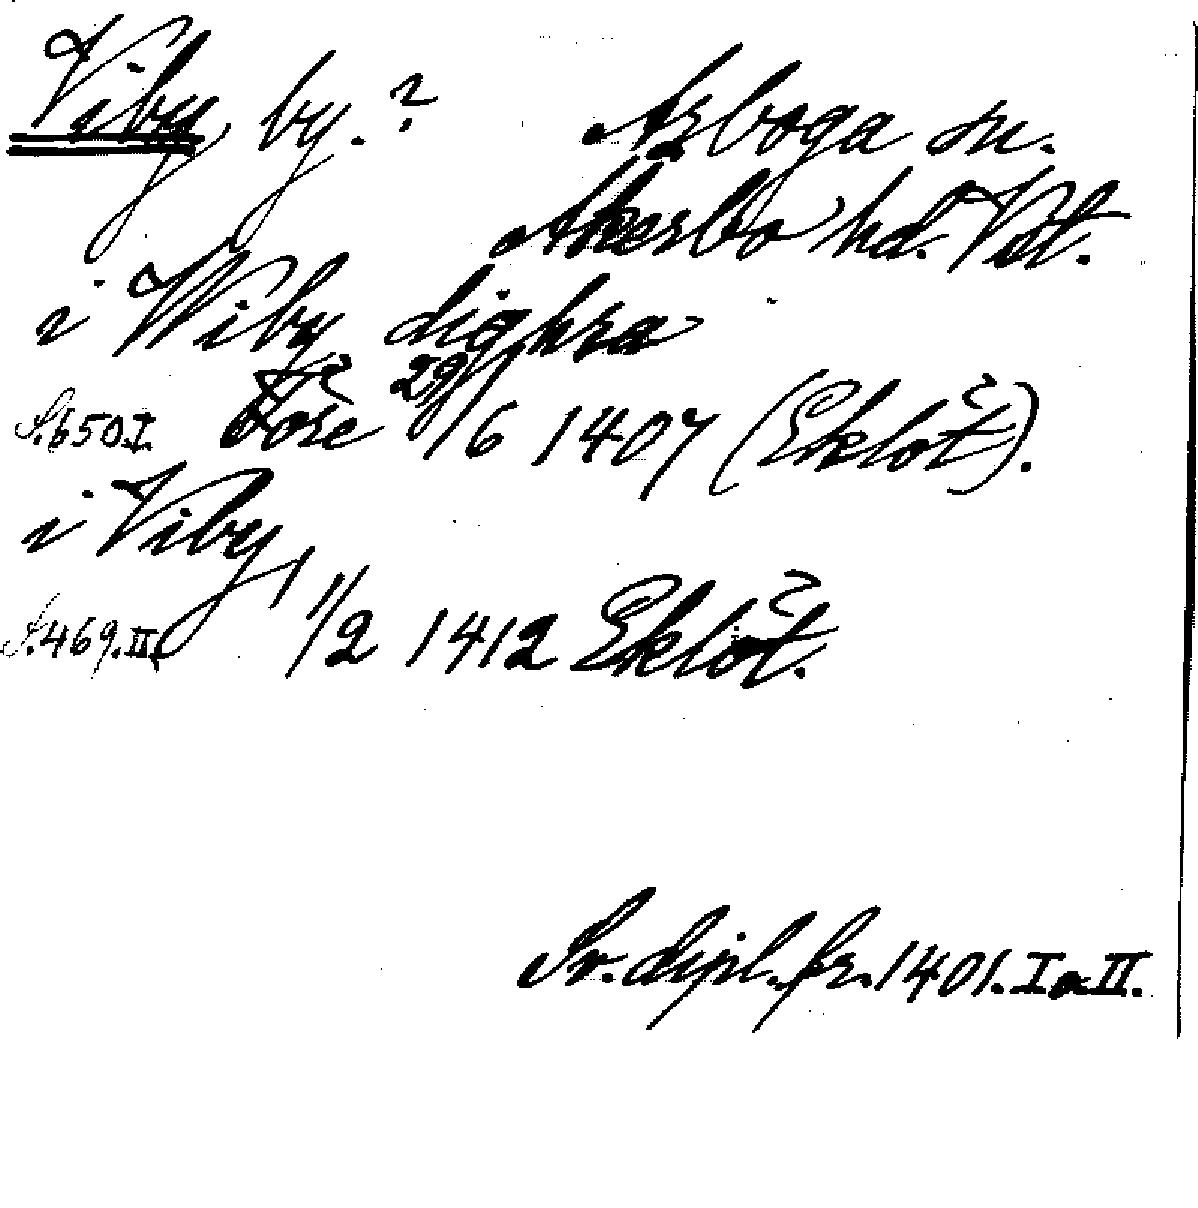 Viby, by.? Arboga sn.
Åkerbo hd. Vstt.
i Wiby dighra
S.650.I. Tose 29/6 1407 (Eklöt?).
i Viby
S.469.II. 11/2 1412 Eklöt?.
Sv. dipl. fr. 1401. I o. II.